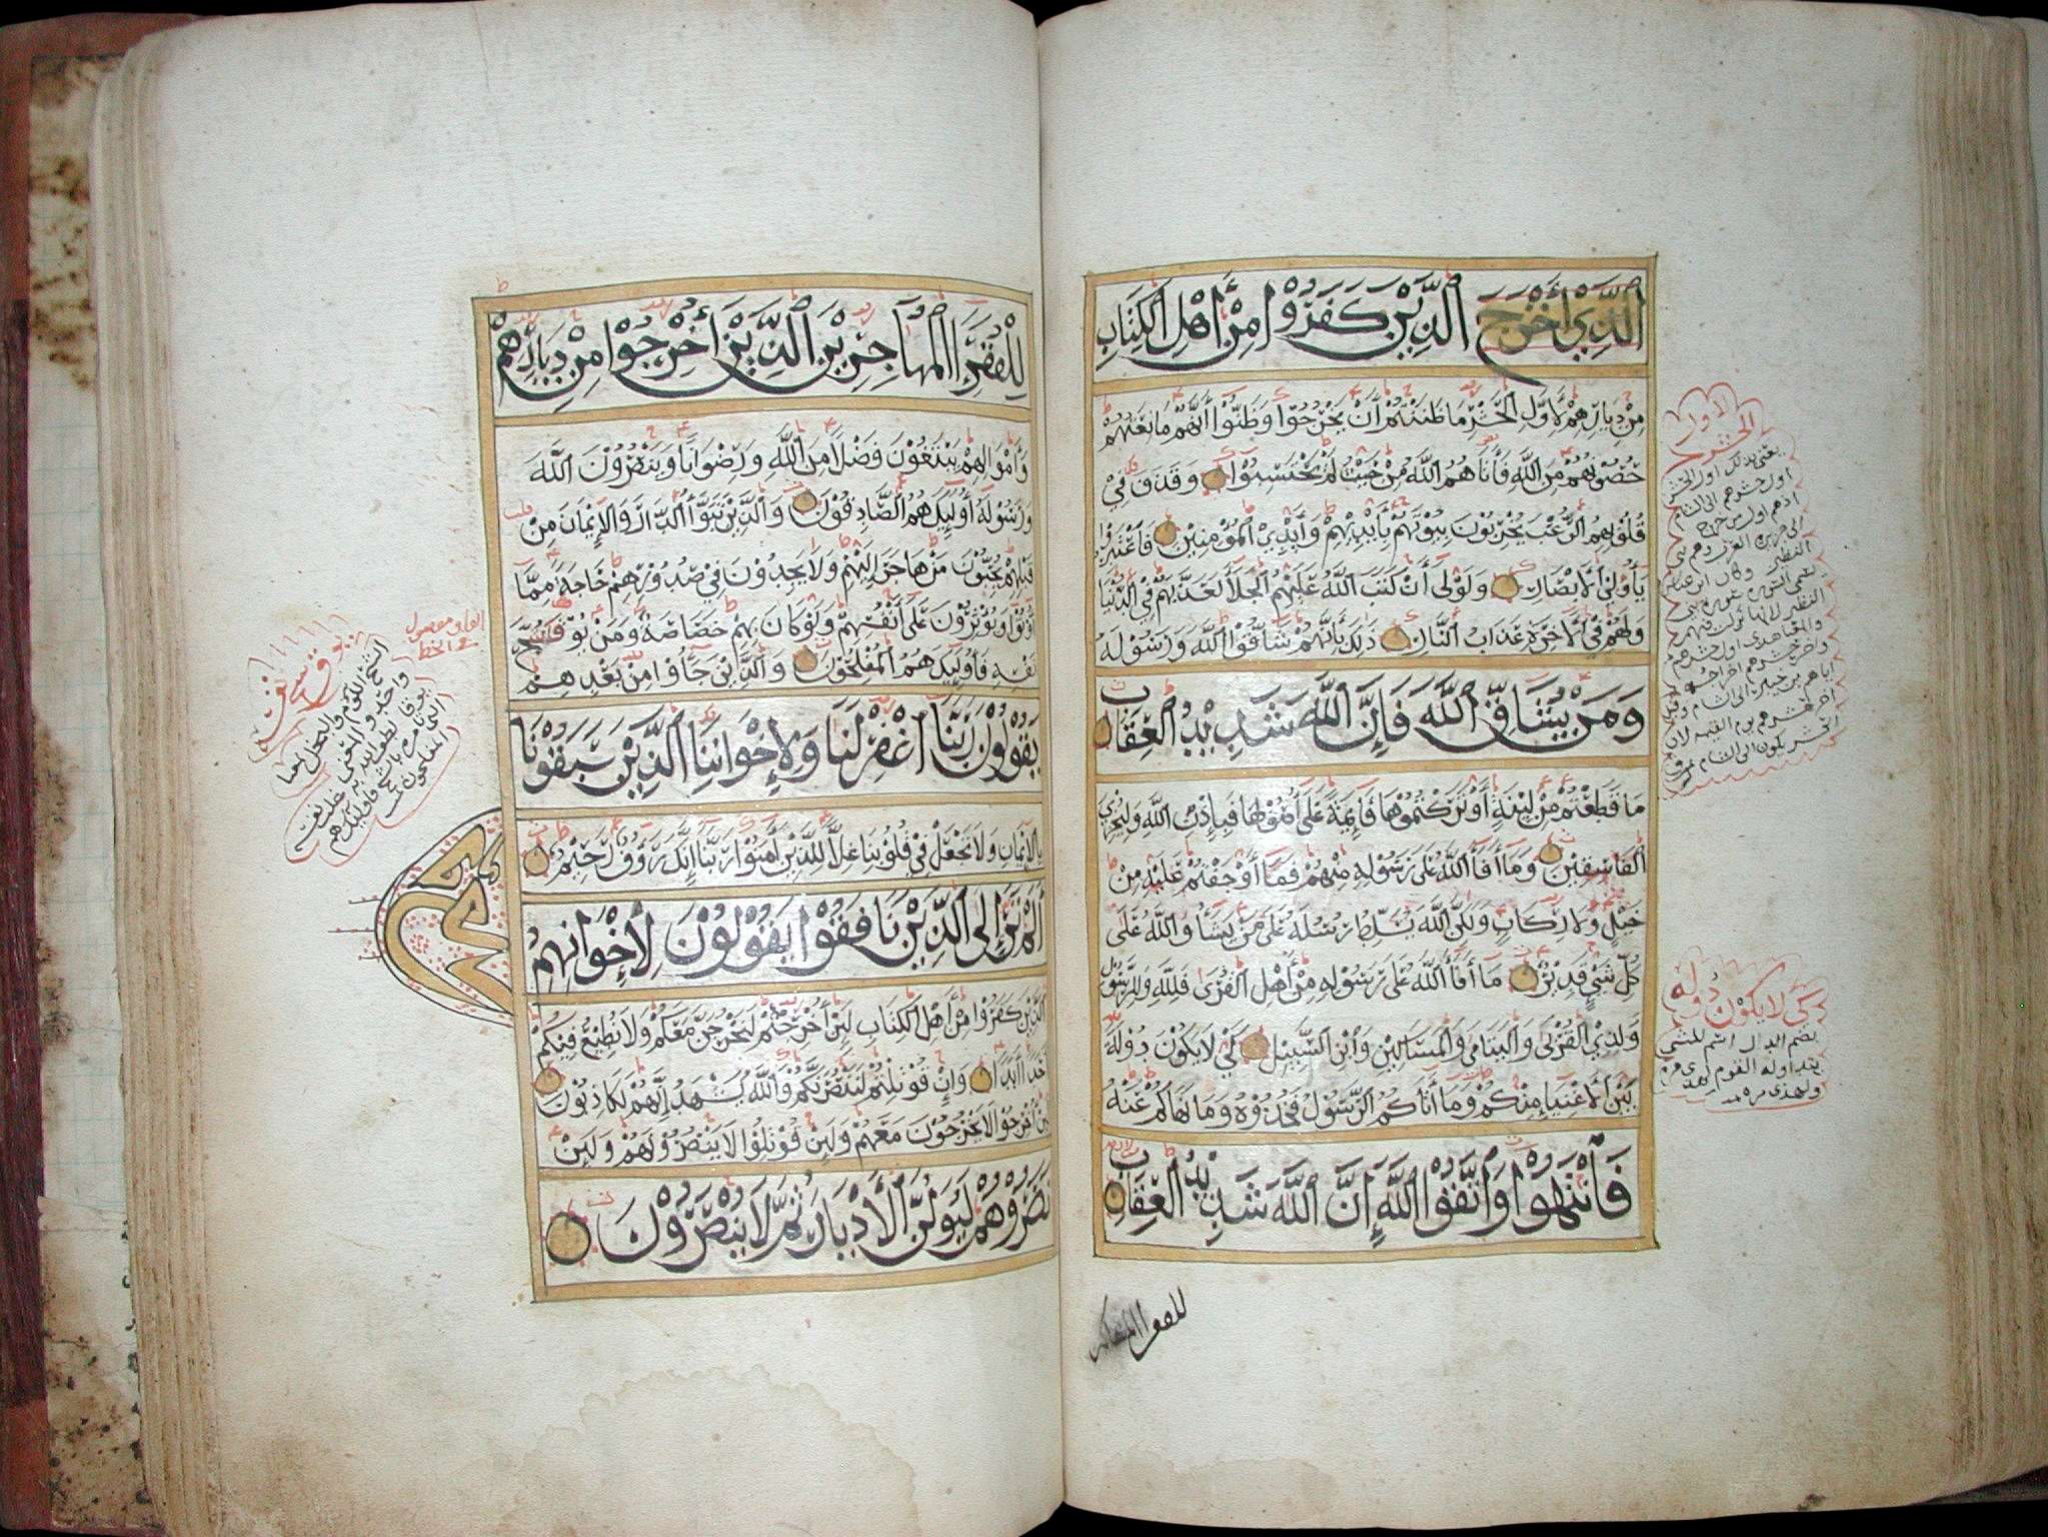 الَّذِيْ أَخْرَجَ الَّذِيْنَ كَفَرُوْا مِنْ أَهْلِ الْكِتَابِ
مِنْ دِيَارِهِمْ لِأَوَّلِ الْحَشْرِ مَا ظَنَنْتُمْ أَنْ يَخْرُجُوْا وَظَنُّوْا أَنَّهُمْ مَانِعَتُهُمْ
حُصُوْنُهُمْ مِنَ اللَّهِ فَأَتَاهُمُ اللَّهُ مِنْ حَيْثُ لَمْ يَحْتَسِبُوْا وَقَذَفَ فِيْ
قُلُوْبِهِمُ الرُّعْبَ يُخْرِبُوْنَ بُيُوْتَهُمْ بِأَيْدِيْهِمْ وَأَيْدِيْ الْمُؤْمِنِيْنَ فَاعْتَبِرُوْا
يَا أُوْلِيْ الْأَبْصَارِ وَلَوْلَا أَنْ كَتَبَ اللَّهُ عَلَيْهِمُ الْجَلَاءَ لَعَذَّبَهُمْ فِي الدُّنْيَا
وَلَهُمْ فِي الْآخِرَةِ عَذَابُ النَّارِ ذَلِكَ بِأَنَّهُمْ شَاقُّوْا اللَّهَ وَرَسُوْلَهُ
وَمَنْ يُشَاقِّ اللَّهَ فَإِنَّ اللَّهَ شَدِيْدُ الْعِقَابِ
مَا قَطَعْتُمْ مِنْ لِيْنَةٍ أَوْ تَرَكْتُمُوْهَا قَائِمَةً عَلَى أُصُوْلِهَا فَبِإِذْنِ اللَّهِ وَلِيُخْزِيَ
الْفَاسِقِيْنَ وَمَا أَفَاءَ اللَّهُ عَلَى رَسُوْلِهِ مِنْهُمْ فَمَا أَوْجَفْتُمْ عَلَيْهِ مِنْ
خَيْلٍ وَلَا رِكَابٍ وَلَكِنَّ اللَّهَ يُسَلِّطُ رُسُلَهُ عَلَى مَنْ يَشَاءُ وَاللَّهُ عَلَى
كُلِّ شَيْءٍ قَدِيْرٌ مَا أَفَاءَ اللَّهُ عَلَى رَسُوْلِهِ مِنْ أَهْلِ الْقُرَى فَلِلَّهِ وَلِلرَّسُوْلِ
وَلِذِي الْقُرْبَى وَالْيَتَامَى وَالْمَسَاكِيْنَ وَابْنِ السَّبِيْلِ كَيْ لَا يَكُوْنَ دُوْلَةً
بَيْنَ الْأَغْنِيَاءِ مِنْكُمْ وَمَا آتَاكُمُ الرَّسُوْلُ فَخُذُوْهُ وَمَا نَهَاكُمْ عَنْهُ
فَانْتَهُوْا وَاتَّقُوْا اللَّهَ إِنَّ اللَّهَ شَدِيْدُ الْعِقَابِ
لاول
الحشر
يعني بذلك اول الحشر
كي لا يكون دولة
بضم الدال اسم للشيء
يتداوله القوم
للفقرا المهاجرين
لِلْفُقَرَاءِ الْمُهَاجِرِيْنَ الَّذِيْنَ أُخْرِجُوْا مِنْ دِيَارِهِمْ
وَأَمْوَالِهِمْ يَبْتَغُوْنَ فَضْلًا مِنَ اللَّهِ وَرِضْوَانًا وَيَنْصُرُوْنَ اللَّهَ
وَرَسُوْلَهُ أُوْلَئِكَ هُمُ الصَّادِقُوْنَ وَالَّذِيْنَ تَبَوَّءُوا الدَّارَ وَالْإِيْمَانَ مِنْ
قَبْلِهِمْ يُحِبُّوْنَ مَنْ هَاجَرَ إِلَيْهِمْ وَلَا يَجِدُوْنَ فِيْ صُدُوْرِهِمْ حَاجَةً مِمَّا
أُوْتُوْا وَيُؤْثِرُوْنَ عَلَى أَنْفُسِهِمْ وَلَوْ كَانَ بِهِمْ خَصَاصَةٌ وَمَنْ يُوْقَ شُحَّ
نَفْسِهِ فَأُوْلَئِكَ هُمُ الْمُفْلِحُوْنَ وَالَّذِيْنَ جَاءُوْا مِنْ بَعْدِهِمْ
يَقُوْلُوْنَ رَبَّنَا اغْفِرْ لَنَا وَلِإِخْوَانِنَا الَّذِيْنَ سَبَقُوْنَا
بِالْإِيْمَانِ وَلَا تَجْعَلْ فِيْ قُلُوْبِنَا غِلًّا لِلَّذِيْنَ آمَنُوْا رَبَّنَا إِنَّكَ رَءُوْفٌ رَحِيْمٌ
أَلَمْ تَرَ إِلَى الَّذِيْنَ نَافَقُوْا يَقُوْلُوْنَ لِإِخْوَانِهِمُ
الَّذِيْنَ كَفَرُوْا مِنْ أَهْلِ الْكِتَابِ لَئِنْ أُخْرِجْتُمْ لَنَخْرُجَنَّ مَعَكُمْ وَلَا نُطِيْعُ فِيْكُمْ
أَحَدًا أَبَدًا وَإِنْ قُوْتِلْتُمْ لَنَنْصُرَنَّكُمْ وَاللَّهُ يَشْهَدُ إِنَّهُمْ لَكَاذِبُوْنَ
لَئِنْ أُخْرِجُوْا لَا يَخْرُجُوْنَ مَعَهُمْ وَلَئِنْ قُوْتِلُوْا لَا يَنْصُرُوْنَهُمْ وَلَئِنْ
نَصَرُوْهُمْ لَيُوَلُّنَّ الْأَدْبَارَ ثُمَّ لَا يُنْصَرُوْنَ